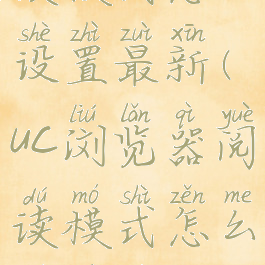 shè zhì zuì xīn
设置最新(
liú lǎn qì yuè
UC浏览器阅
dú mó shì zěn me
读模式怎么